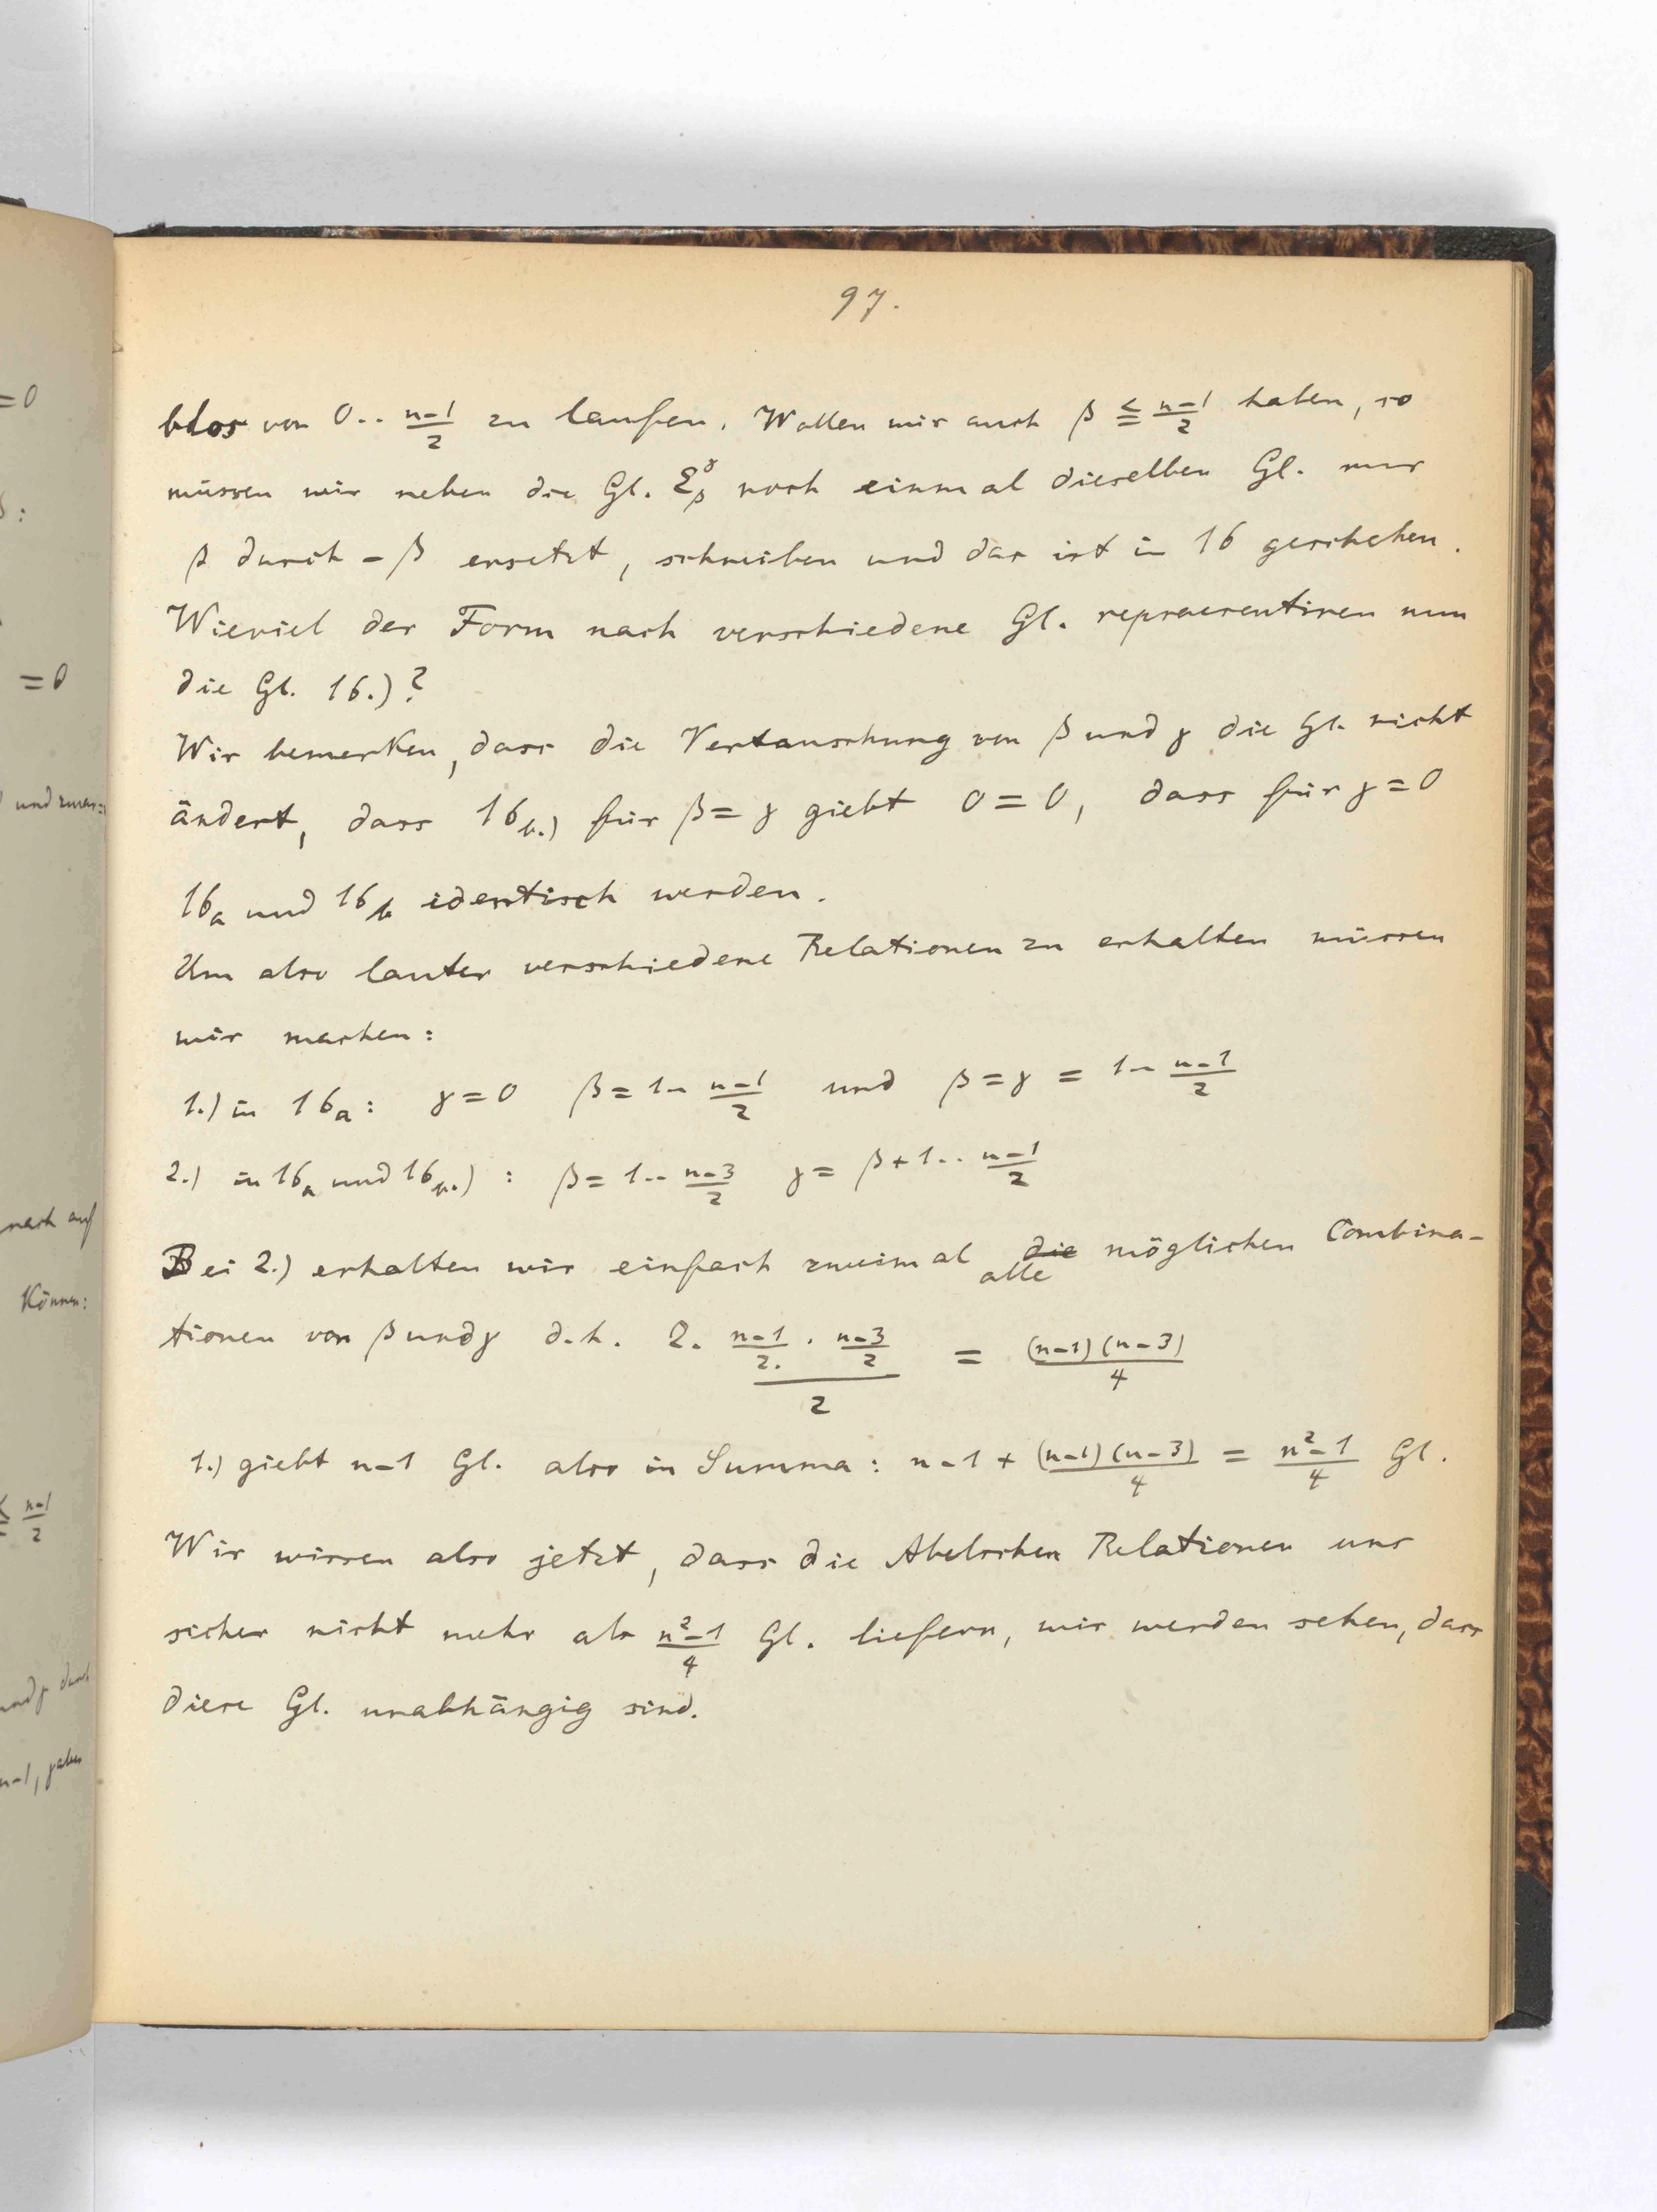 97.
blos von 0.. n-1/2 zu laufen. Wollen wir auch β ≦ n-1/2 haben, so
müssen wir neben die Gl. Σ_β^γ noch einmal dieselben Gl. nur
β durch -β ersetzt, schreiben und das ist in 16 geschehen.
Wieviel der Form nach verschiedene Gl. repraesentiren nun
die Gl. 16.)?
Wir bemerken, dass die Vertauschung von β und γ die Gl. nicht
ändert, dass 16b.) für β = γ giebt 0 = 0, dass für γ = 0
16a und 16b identisch werden.
Um also lauter verschiedene Relationen zu erhalten müssen
wir machen:
1.) in 16a: γ = 0 β = 1.. n-1/2 und β = γ = 1.. n-1/2
2.) in 16a und 16b.) : β = 1.. n-3/2 γ = β+1.. n-1/2
Bei 2.) erhalten wir einfach zweimal die alle möglichen Combina-
tionen von β und γ d.h. 2. (n-1/2 . n-3/2)/2 = (n-1)(n-3)/4
1.) giebt n-1 Gl. also in Summa: n-1 + (n-1)(n-3)/4 = n²-1/4 Gl.
Wir wissen also jetzt, dass die Abelschen Relationen uns
sicher nicht mehr als n²-1/4 Gl. liefern, wir werden sehen, dass
diese Gl. unabhängig sind.
=0
=0
und zwar:
nach auf
können:
≦ n-1/2
und γ durch
n-1,